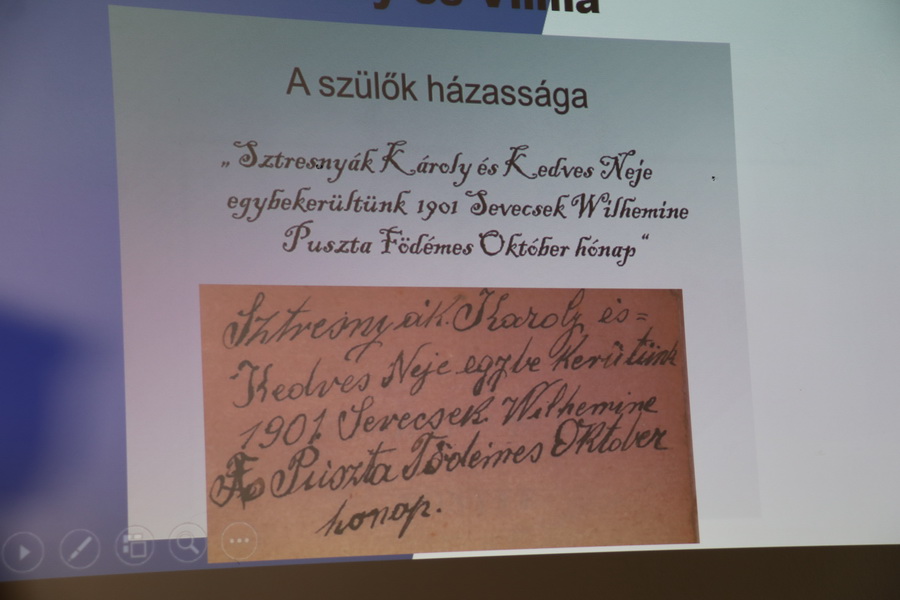 A szülők házassága
„Sztresnyák Károly és Kedves Neje
egybekerültünk 1901 Sevecsek Wilhemine
Puszta Födémes Október hónap“
Sztresnyák. Karoly és=
Kedves Neje egybe Kerültünk
1901. Sevecsek. Wilhemine
Puszta Födémes Oktober
honap.